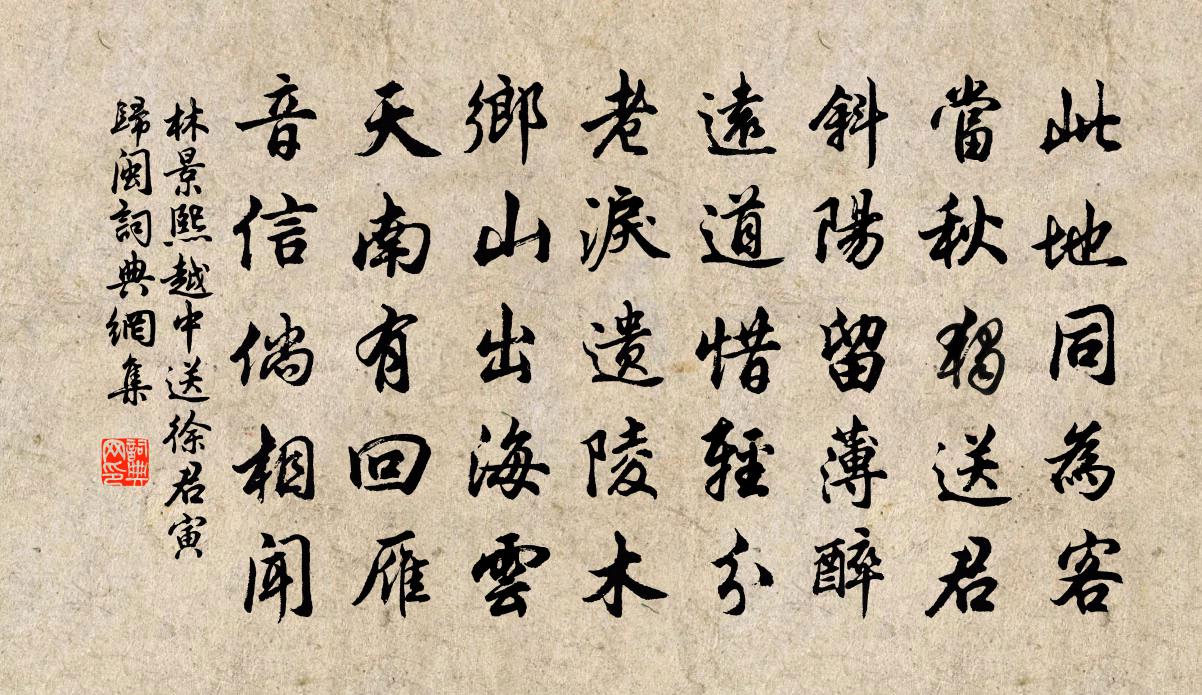 此地同為客
當秋獨送君
斜陽留薄醉
遠道惜輕分
老淚遺陵木
鄉山出海雲
天南有回雁
音信倘相聞
林景熙越中送徐君寅
歸閩詞典網集
詞典
网印